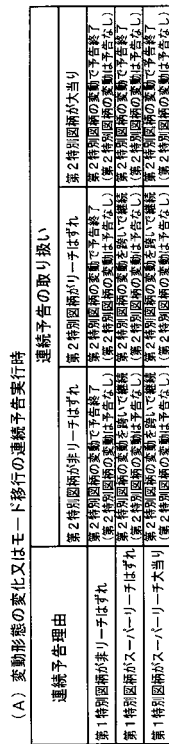 (A) 変動形態の変化又はモード移行の連続予告実行時
連続予告理由
連続予告の取り扱い
第2特別図柄が非リーチはずれ
第2特別図柄がリーチはずれ
第2特別図柄が大当り
第1特別図柄が非リーチはずれ
第2特別図柄の変動で予告終了
(第2特別図柄の変動は予告なし)
第2特別図柄の変動で予告終了
(第2特別図柄の変動は予告なし)
第2特別図柄の変動で予告終了
(第2特別図柄の変動は予告なし)
第1特別図柄がスーパーリーチはずれ
第2特別図柄の変動を跨いで継続
(第2特別図柄の変動は予告なし)
第2特別図柄の変動を跨いで継続
(第2特別図柄の変動は予告なし)
第2特別図柄の変動で予告終了
(第2特別図柄の変動は予告なし)
第1特別図柄がスーパーリーチ大当り
第2特別図柄の変動を跨いで継続
(第2特別図柄の変動は予告なし)
第2特別図柄の変動を跨いで継続
(第2特別図柄の変動は予告なし)
第2特別図柄の変動で予告終了
(第2特別図柄の変動は予告なし)